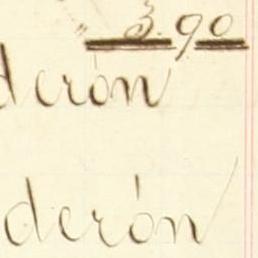 3.90
derón
derón